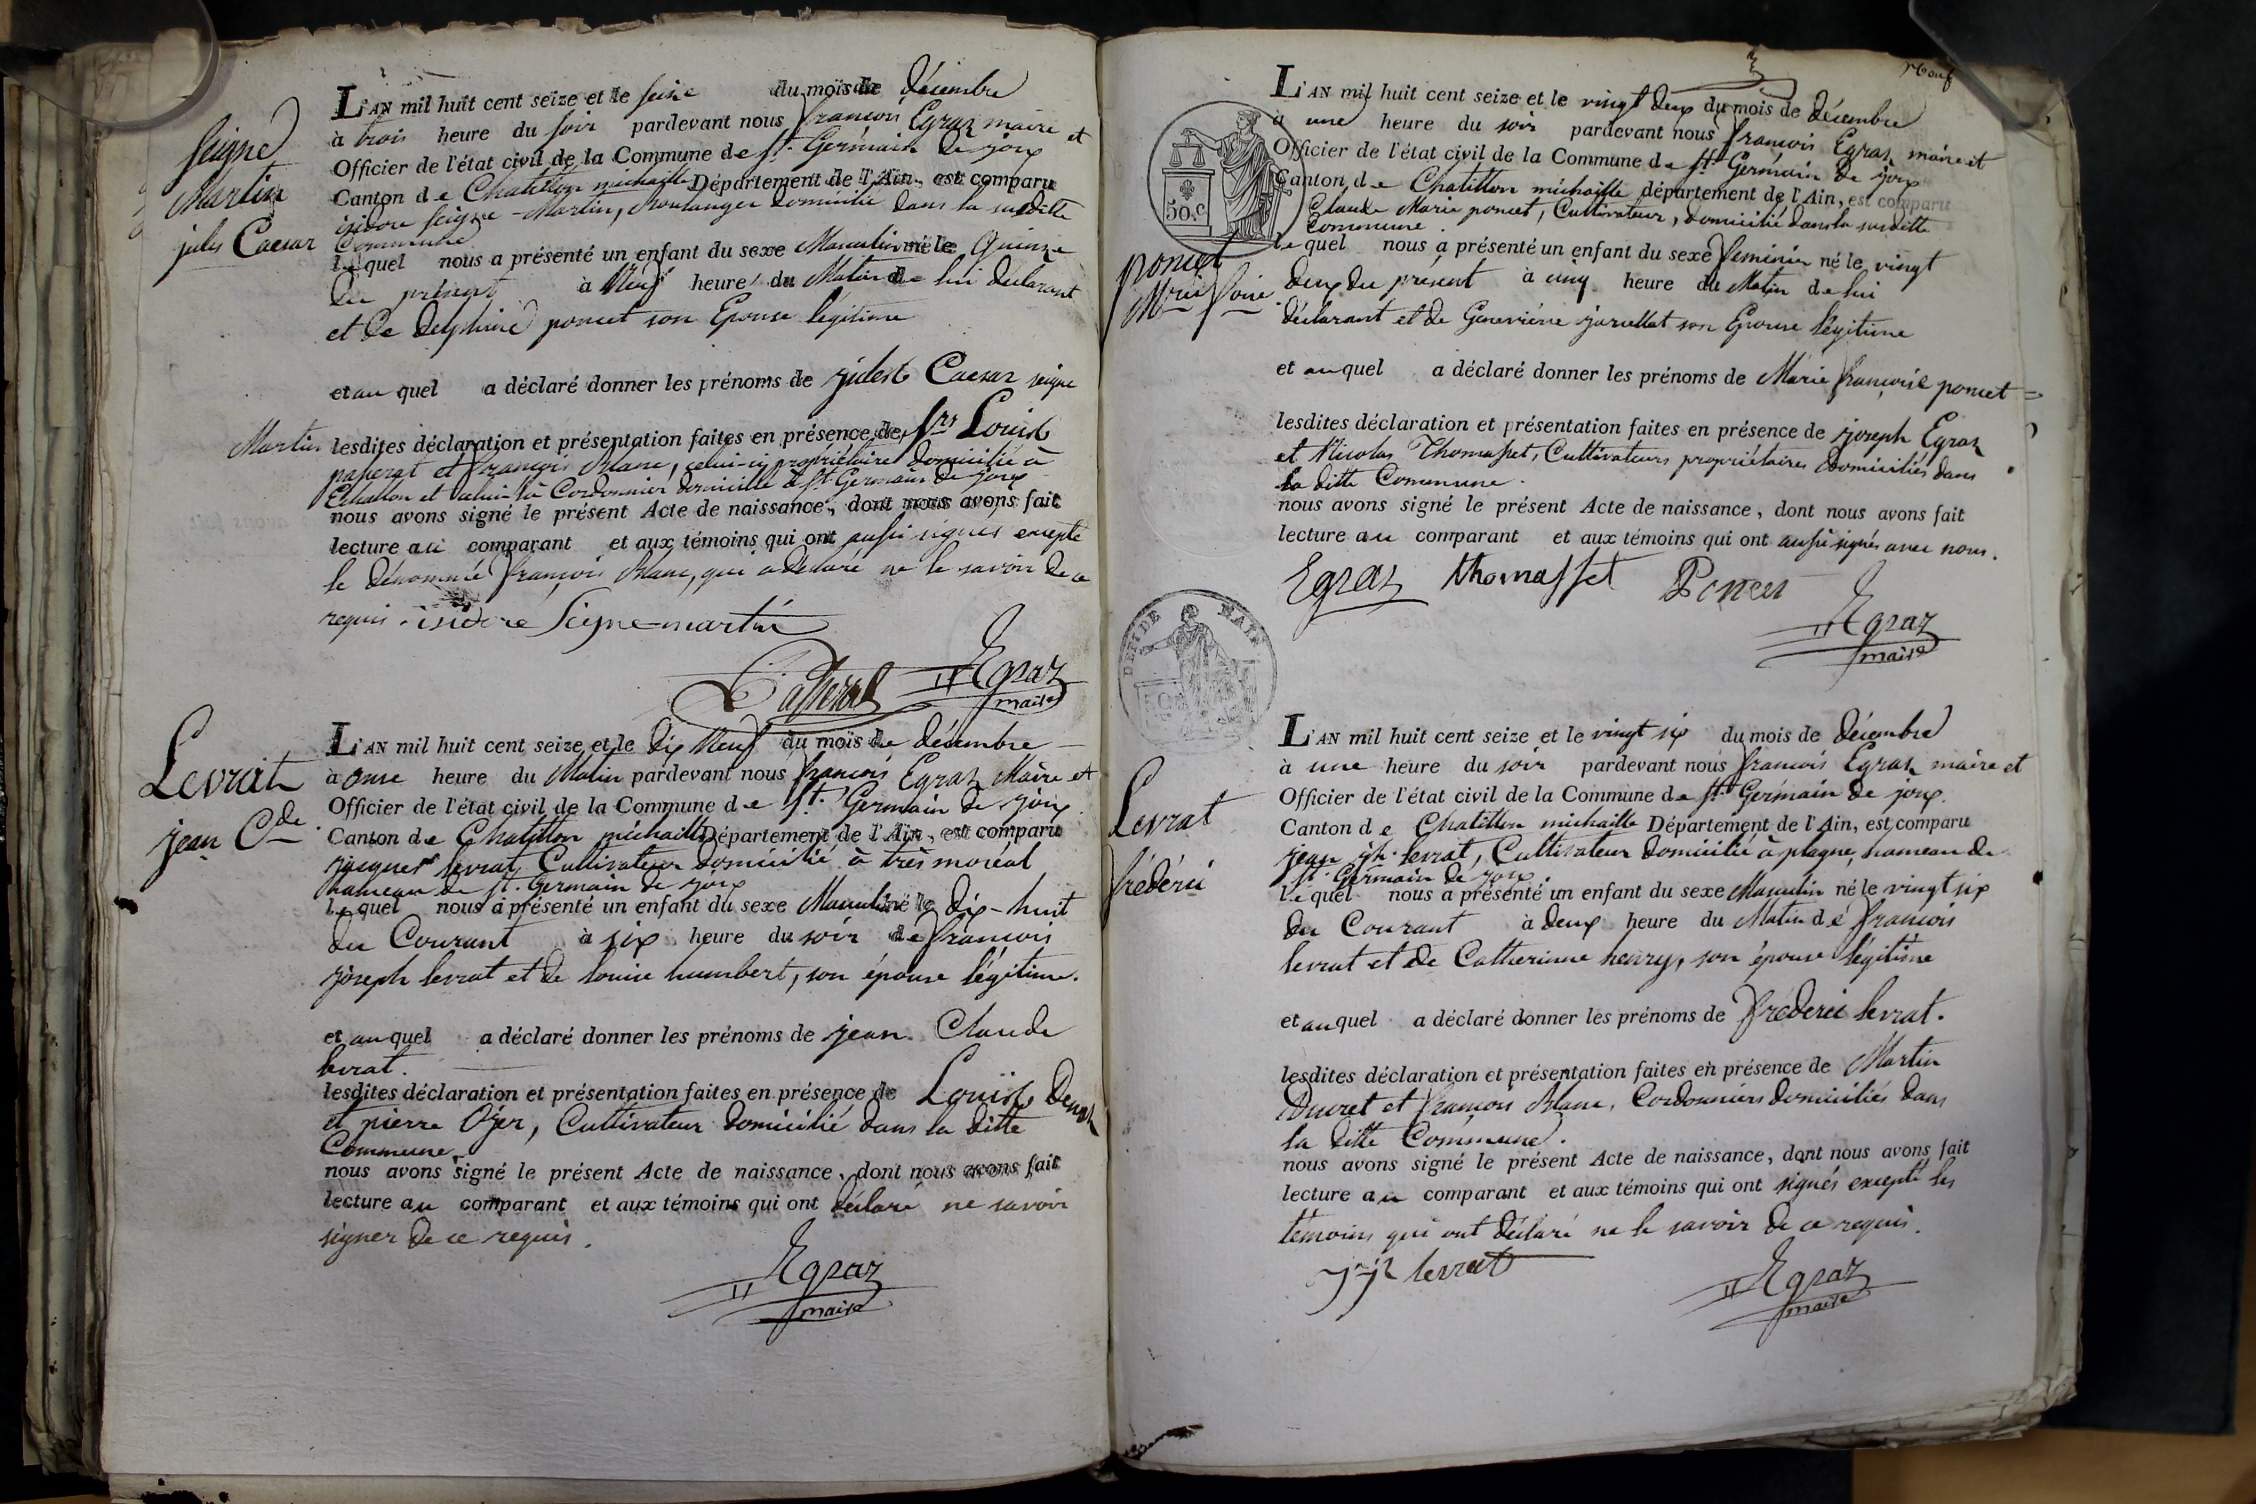 L'AN mil huit cent seize et le seize du mois de décembre
à trois heure du soir pardevant nous françois Egraz maire et
Officier de l'état civil de la Commune de St. Germain de joux
Canton de Chatillon michaille Département de l'Ain, est comparu
isidore seigne-Martin, Boulanger domicilié dans la susditte
Commune
lequel nous a présenté un enfant du sexe Masculin né le Quinze
du présent à Neuf heure du Matin de lui déclarant
et de delphine poncet son Epouse légitime
et au quel a déclaré donner les prénoms de jules Caesar seigne
Martin lesdites déclaration et présentation faites en présence de frs Louis
passerat et françois Blanc, celui-ci propriétaire domicilié à
Echallon et celui-là Cordonnier domicilié à St Germain de joux
nous avons signé le présent Acte de naissance, dont nous avons fait
lecture au comparant et aux témoins qui ont aussi signés excepté
le dénommé françois Blanc, qui a déclaré ne le savoir de ce
requis. isidore Seigne-martin
Passerat Egraz
maire
Seigne
Martin
jules Caesar
L'AN mil huit cent seize et le dix Neuf du mois de décembre
à onze heure du Matin pardevant nous françois Egraz Maire et
Officier de l'état civil de la Commune de St. Germain de joux
Canton de Chatillon michaille Département de l'Ain, est comparu
jacques levrat Cultivateur domicilié à très moréal
hameau de St. Germain de joux
lequel nous a présenté un enfant du sexe Masculin né le dix-huit
du Courant à six heure du soir de françois
joseph levrat et de louise humbert, son épouse légitime.
et au quel a déclaré donner les prénoms de jean Claude
levrat.
lesdites déclaration et présentation faites en présence de Louis
et pierre Ojer, Cultivateur domicilié dans la ditte
Commune
nous avons signé le présent Acte de naissance, dont nous avons fait
lecture au comparant et aux témoins qui ont déclaré ne savoir
signer de ce requis.
Egraz
maire
Levrat
jean Cde
Neuf
L'AN mil huit cent seize et le vingt deux du mois de décembre
à une heure du soir pardevant nous françois Egraz maire et
Officier de l'état civil de la Commune de St Germain de joux
Canton de Chatillon michaille département de l'Ain, est comparu
Claude Marie poncet, Cultivateur, domicilié dans la susditte
Commune.
lequel nous a présenté un enfant du sexe féminin né le vingt
deux du présent à cinq heure du Matin de lui
déclarant et de Geneviève juillat son Epouse légitime
et au quel a déclaré donner les prénoms de Marie françoise poncet
lesdites déclaration et présentation faites en présence de joseph Egraz
et Nicolas Thomasset, Cultivateurs propriétaires domiciliés dans
la ditte Commune.
nous avons signé le présent Acte de naissance, dont nous avons fait
lecture au comparant et aux témoins qui ont aussi signés avec nous.
Egraz thomasset Poncet
Egraz
maire
50.c
poncet
Mrie foise
DEPT DE L'AIN
L'AN mil huit cent seize et le vingt six du mois de décembre
à une heure du soir pardevant nous françois Egraz maire et
Officier de l'état civil de la Commune de St. Germain de joux
Canton de Chatillon michaille Département de l'Ain, est comparu
jean jh. levrat, Cultivateur domicilié à plagne, hameau de
St. Germain de joux.
lequel nous a présenté un enfant du sexe Masculin né le vingt six
du Courant à deux heure du Matin de françois
levrat et de Catherinne henry, son épouse légitime
et au quel a déclaré donner les prénoms de fréderic levrat.
lesdites déclaration et présentation faites en présence de Martin
Ducret et françois Blanc, Cordonniers domiciliés dans
la ditte Commune.
nous avons signé le présent Acte de naissance, dont nous avons fait
lecture au comparant et aux témoins qui ont signés excepté les
témoins qui ont déclaré ne le savoir de ce requis.
levrat
Egraz
maire
Levrat
fréderic